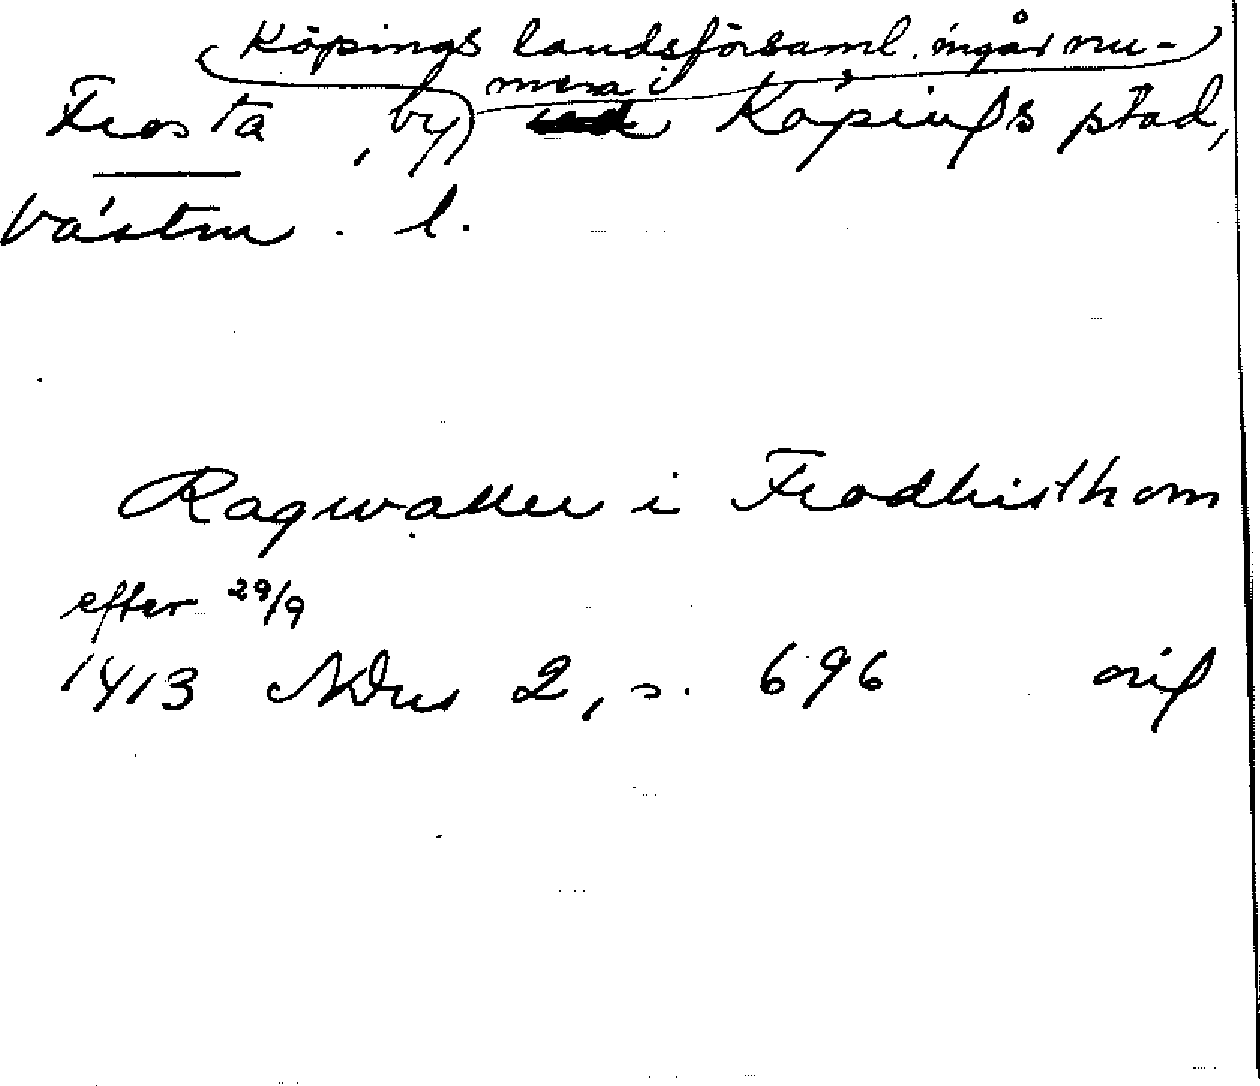 Köpings landsförsaml. ingår nu-
mera i
Frosta, by Köpings stad,
Västm. l.
Ragwaller i Frodhisthom
efter 29/9
1413 NDus 2, s. 696 orig